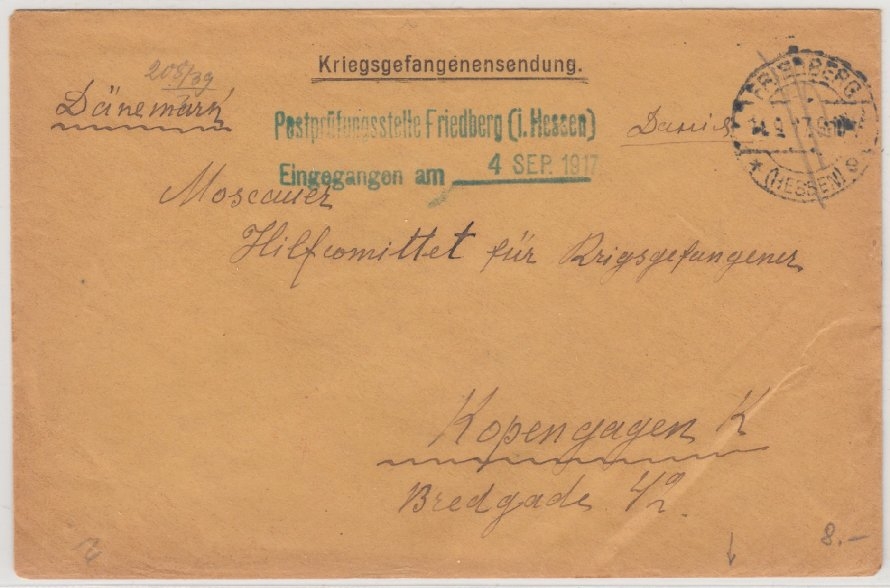 Kriegsgefangenensendung.
205/39
Dänemark
Postprüfungsstelle Friedberg (i. Hessen)
Eingegangen am 4 SEP. 1917
FRIEDBERG
(HESSEN)
Moscauer
Hilfcomittet für Krigsgefangener
Kopengagen K
Bredgade
8.—